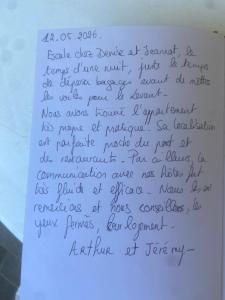 12.05.2026.
Escale chez Denise et Jeannot, le
temps d'une nuit, juste le temps
de déposer bagages avant de mettre
les voiles pour le Levant.
Nous avons trouvé l'appartement
très propre et pratique. Sa localisation
est parfaite proche du port et
de restaurants. Par ailleurs, la
communication avec nos hôtes fut
très fluide et efficace. Nous les en
remercions et nous conseillons, les
yeux fermés, leur logement.
ARTHUR et JÉRÉMY